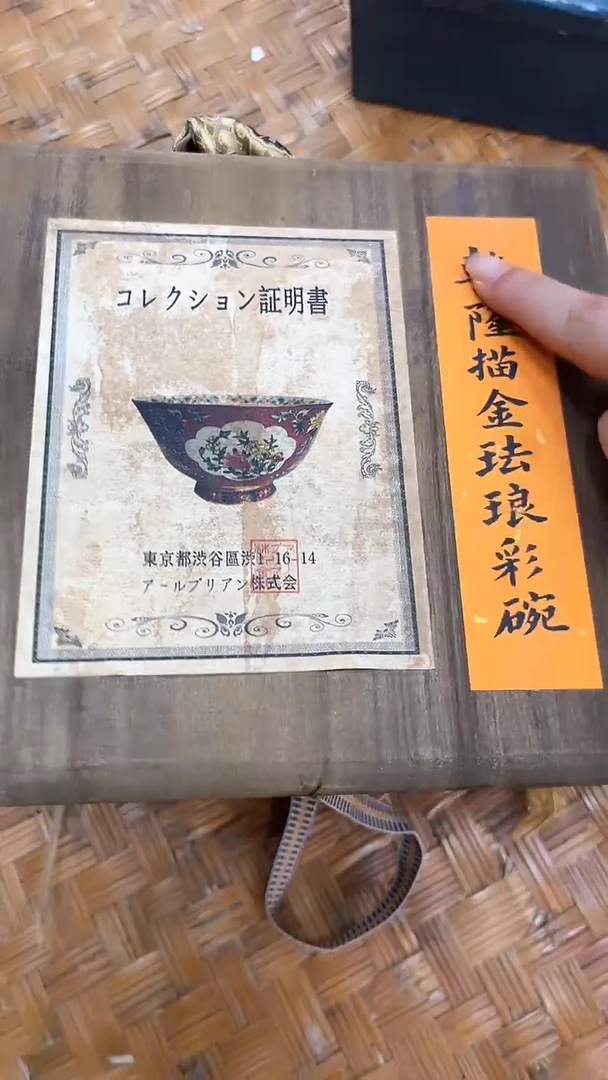 コレクション証明書
東京都渋谷區渋1-16-14
アールブリアン株式会
隆描金珐琅彩碗